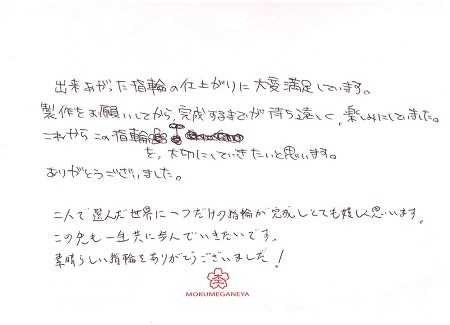 出来あがった指輪の仕上がりに大変満足しています。
製作をお願いしてから、完成するまでが待ち遠しく、楽しみにしていました。
これからこの指輪
を、大切にしていきたいと思います。
ありがとうございました。
二人で選んだ世界に一つだけの指輪が完成しとても嬉しく思います。
この先も一生共に歩んでいきたいです。
素晴らしい指輪をありがとうございました!
MOKUMEGANEYA